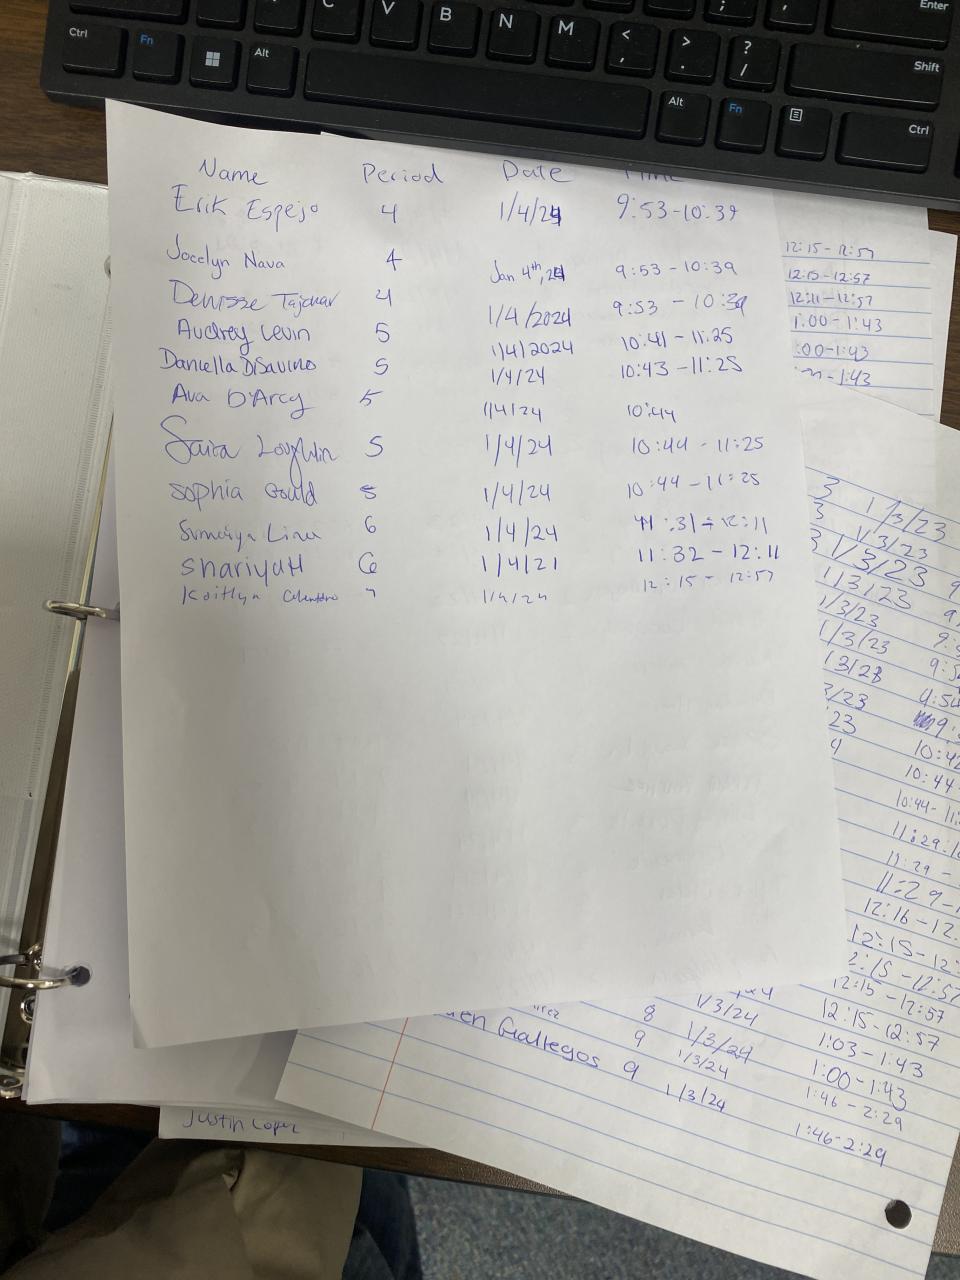 Enter
C V B N M < , > . ? / Shift
Ctrl Fn Alt Alt Fn Ctrl
Name Period Date Time
Erik Espejo 4 1/4/24 9:53-10:39
Jocelyn Nava 4 Jan 4th, 24 9:53 - 10:39
Denisse 4 1/4/2024 9:53 - 10:39
Audrey Levin 5 1/4/2024 10:41 - 11:25
Daniella DiSavino 5 1/4/24 10:43 - 11:25
Ava D'Arcy 5 1/4/24 10:44
Loughlin 5 1/4/24 10:44 - 11:25
Sophia Gould 5 1/4/24 10:44 - 11:25
Sumaiya Lina 6 1/4/24 11:31 - 12:11
Shariyah 6 1/4/21 11:32 - 12:11
Kaitlyn 7 1/4/24 12:15 - 12:57
12:15 - 12:57
12:15 - 12:57
12:11 - 12:57
1:00 - 1:43
:00-1:43
1:43
3 1/3/23
3 1/3/23
3 1/3/23 9
1/3/23
1/3/23 9:5
1/3/23 9:5
1/3/23 9:54
3/23 9:
23 10:42
4 10:44
10:44 - 11:
11:29-1
11:29 -
11:29-1
12:16 - 12.
12:15 - 12:
2:15 - 12:57
12:15 - 12:57
12:15 - 12:57
8 1/3/24 1:03 - 1:43
9 1/3/24 1:00 - 1:43
1/3/24 1:46 - 2:29
Gallegos 9 1/3/24 1:46-2:29
Justin Lopez